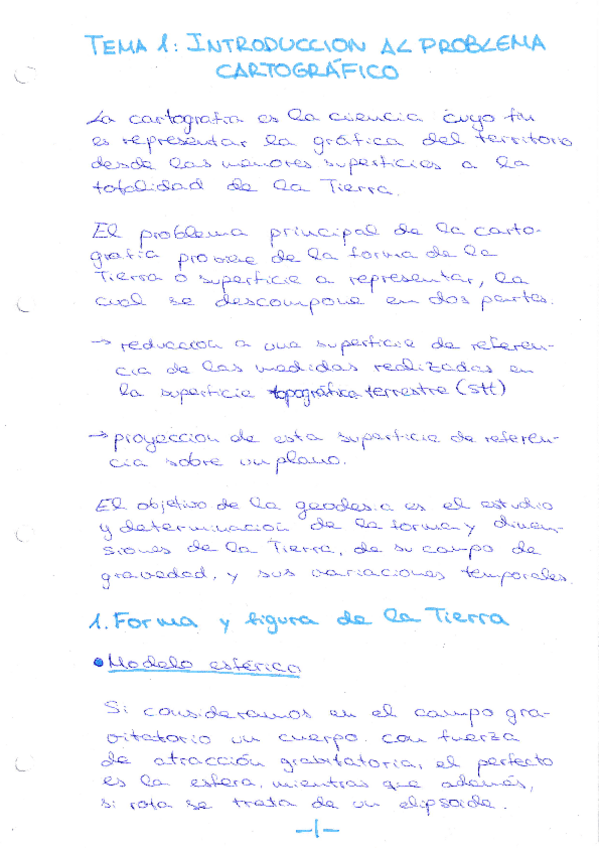 TEMA 1: INTRODUCCION AL PROBLEMA
CARTOGRÁFICO
La cartografía es la ciencia cuyo fin
es representar la gráfica del territorio
desde las menores superficies a la
totalidad de la Tierra.
El problema principal de la carto-
grafía proviene de la forma de la
Tierra o superficie a representar, la
cual se descompone en dos partes.
→ reduccion a una superficie de referen-
cia de las medidas realizadas en
la superficie topográfica terrestre (stt)
→ proyeccion de esta superficie de referen-
cia sobre un plano.
El objetivo de la geodesia es el estudio
y determinación de la forma y dimen-
siones de la Tierra, de su campo de
gravedad, y sus variaciones temporales.
1. Forma y figura de la Tierra
• Modelo esférico
Si consideramos en el campo gra-
vitatorio un cuerpo con fuerza
de atracción grabitatoria, el perfecto
es la esfera, mientras que además,
si rota se trata de un elipsoide.
-1-